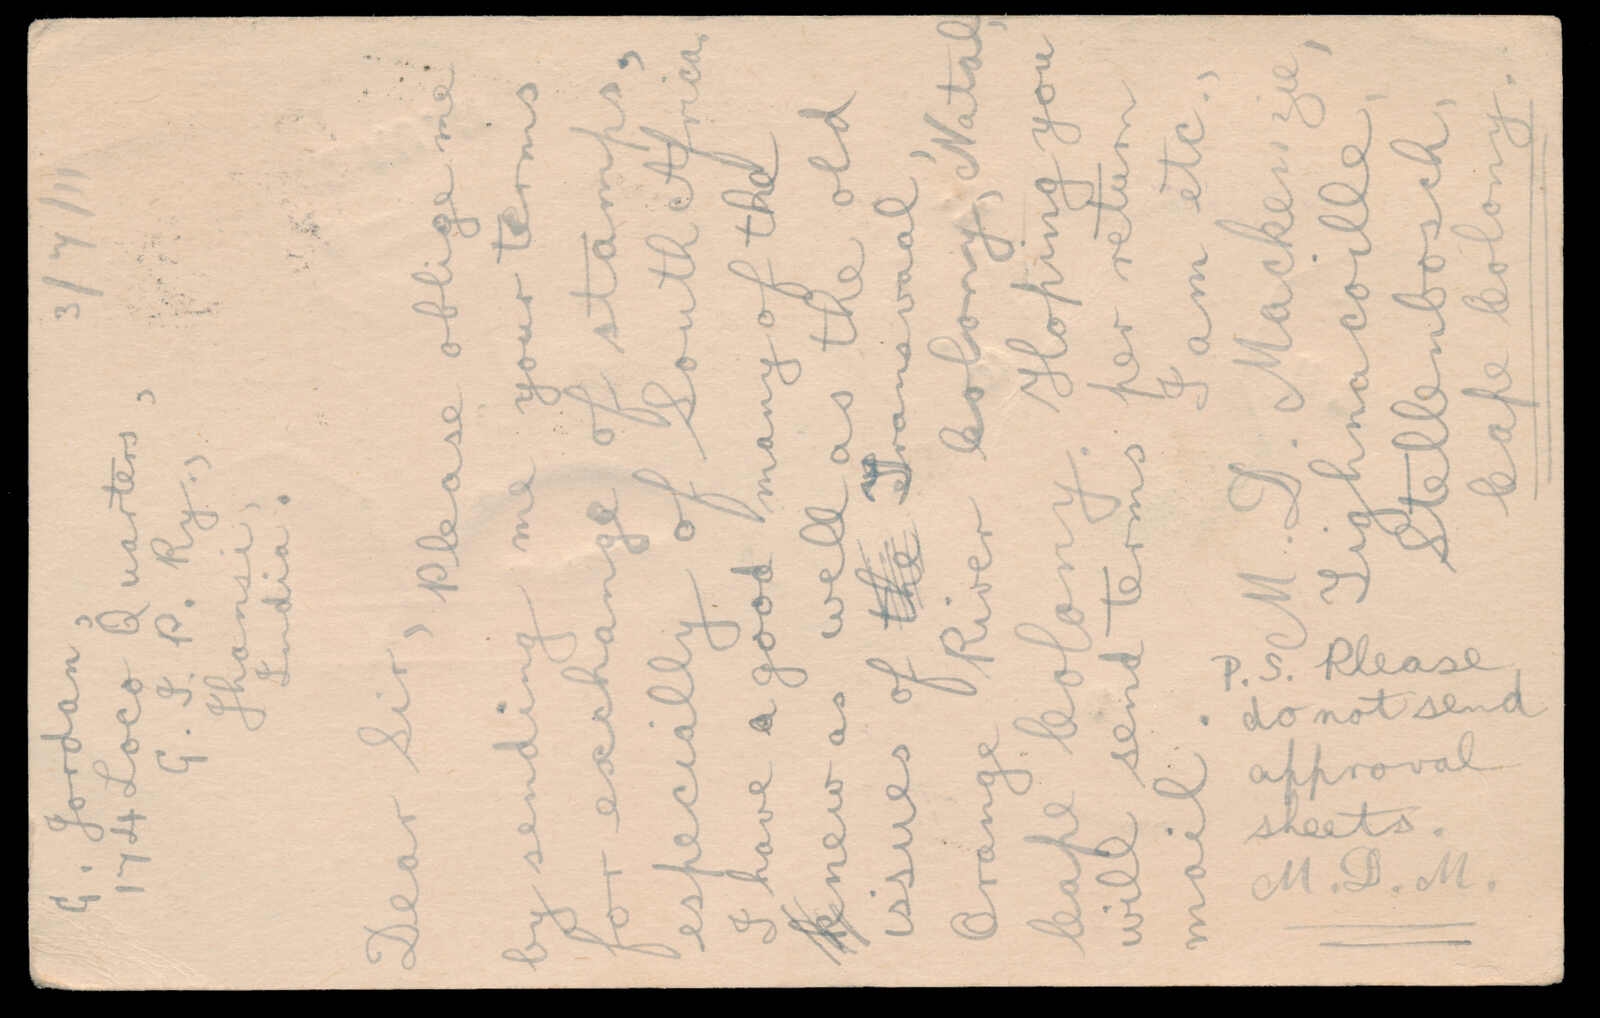 3/7/11
G. Jordan,
174 Loco Quarters,
G. I. P. Ry.,
Jhansi,
India.
Dear Sir, Please oblige me
by sending me your terms
for exchange of stamps,
especially of South Africa.
I have a good many of the
new as well as the old
issues of the Transvaal,
Orange River Colony, Natal,
Cape Colony. Hoping you
will send terms per return
mail. I am etc.,
M. D. Mackenzie,
Stellenbosch,
Cape Colony.
P.S. Please
do not send
approval
sheets.
M.D.M.